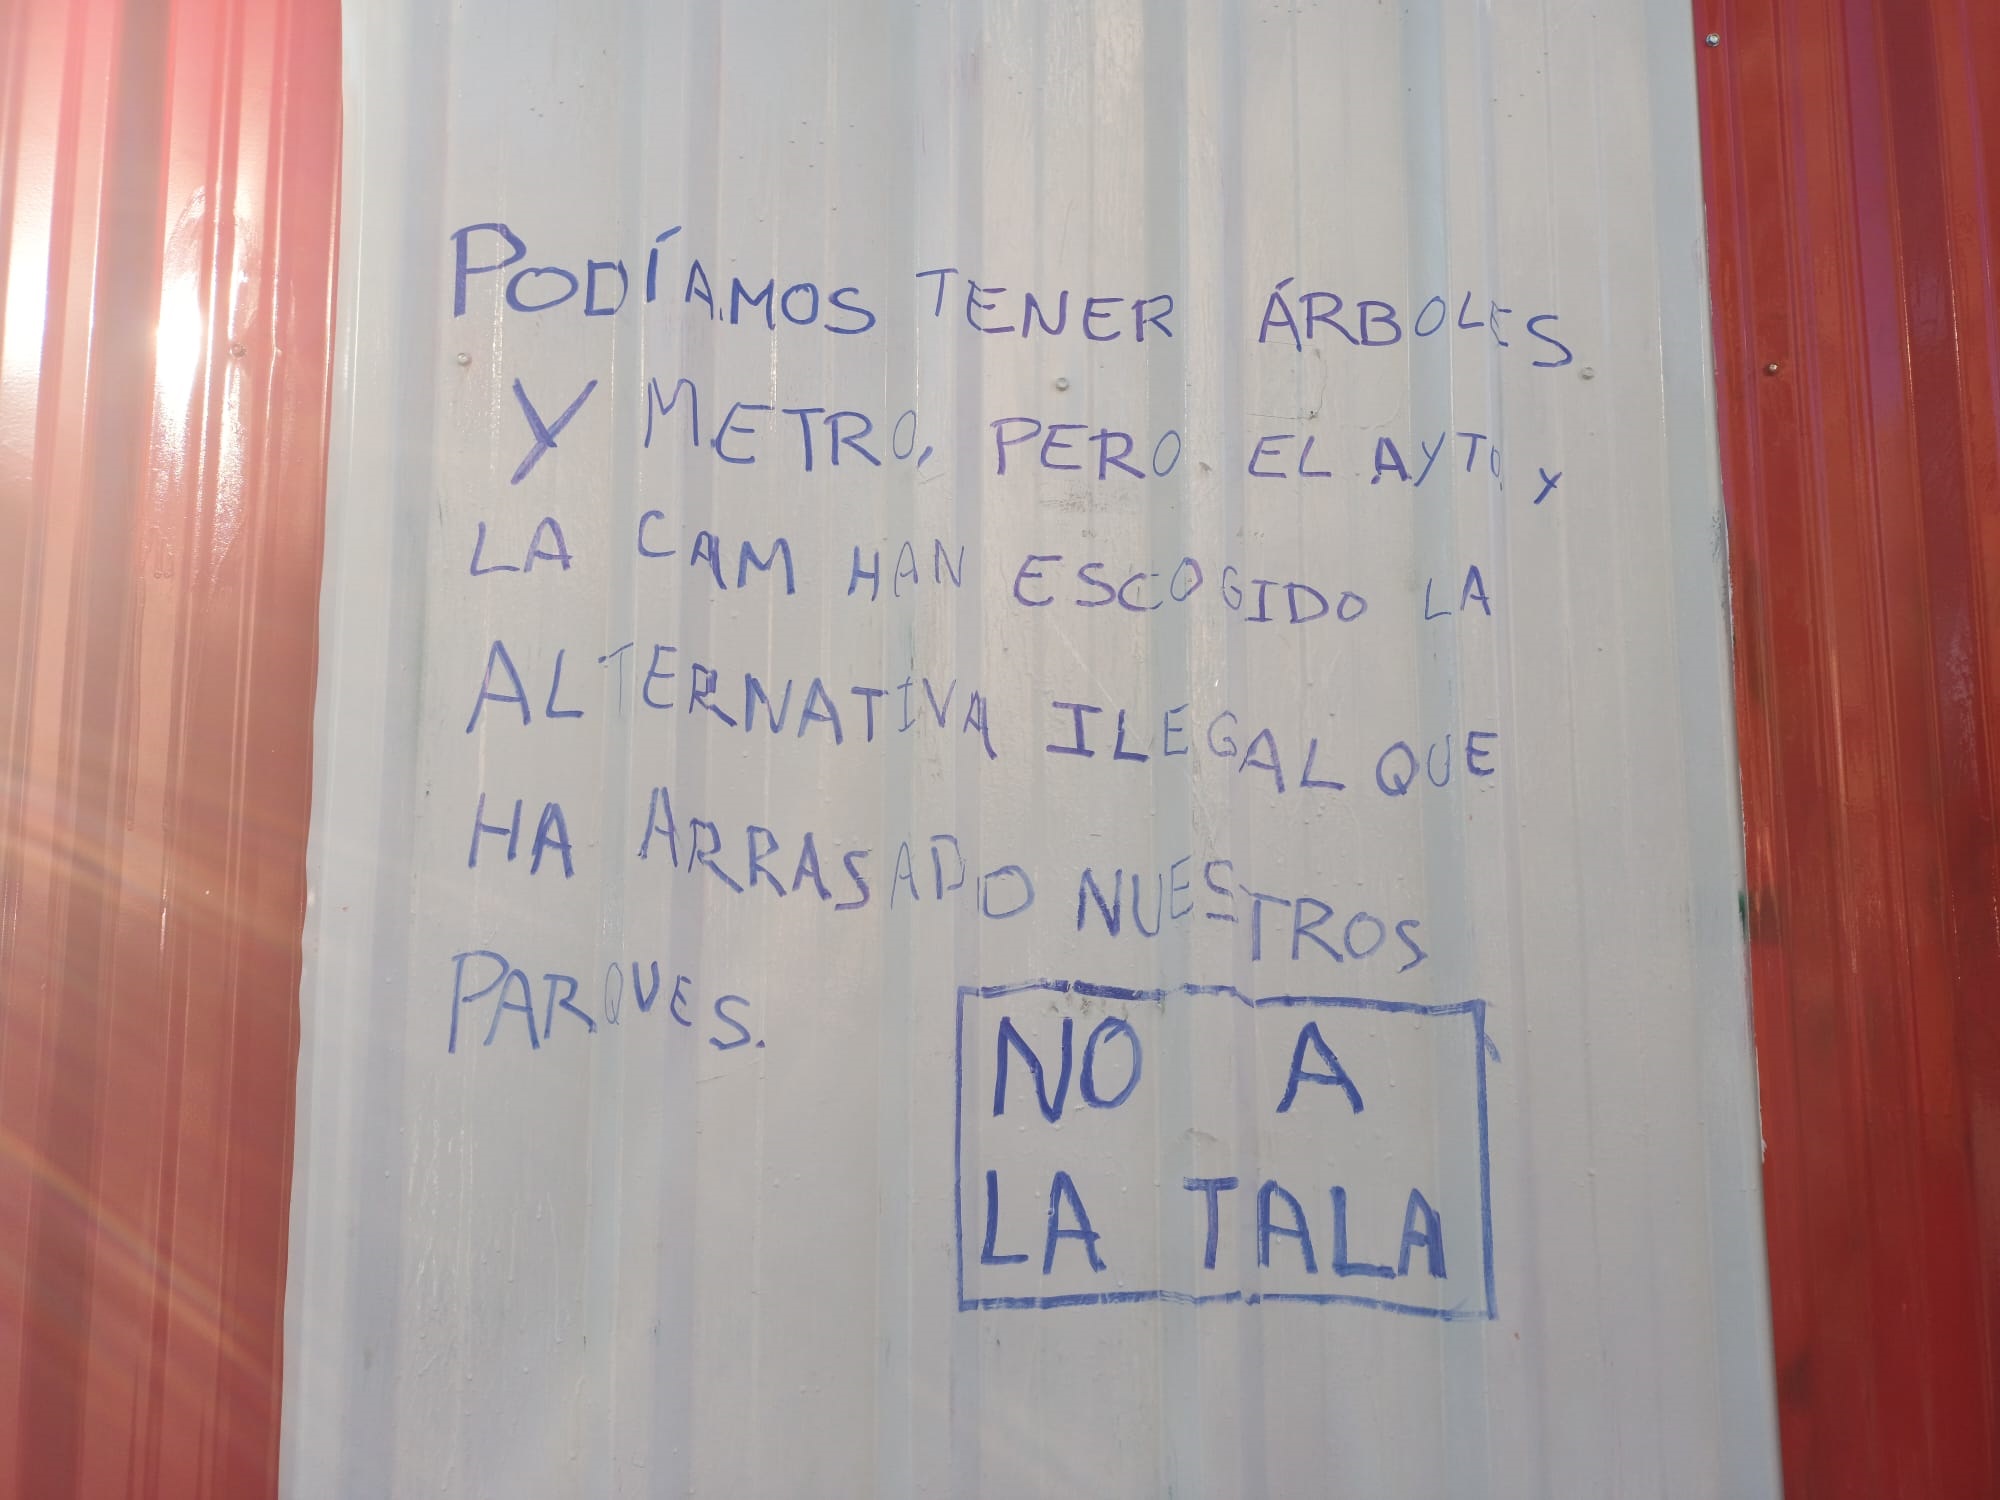 PODÍAMOS TENER ÁRBOLES
Y METRO, PERO EL AYTO. Y
LA CAM HAN ESCOGIDO LA
ALTERNATIVA ILEGAL QUE
HA ARRASADO NUESTROS
PARQUES.
NO A
LA TALA